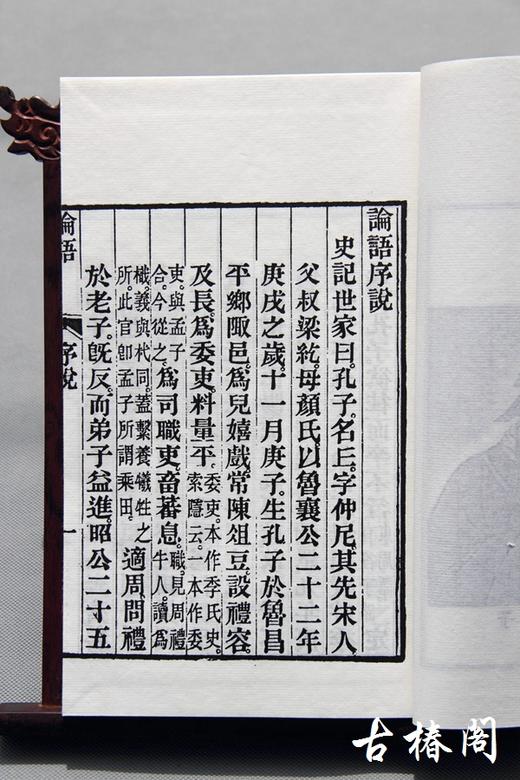 論語序說
史記世家曰。孔子。名丘。字仲尼。其先宋人。
父叔梁紇。母顏氏。以魯襄公二十二年
庚戌之歲。十一月庚子。生孔子於魯昌
平鄉陬邑。爲兒嬉戲。常陳俎豆。設禮容。
及長。爲委吏。料量平。委吏。本作季氏史。索隱云。一本作委
吏。與孟子合。今從之。爲司職吏。畜蕃息。職。見周禮牛人。讀爲
樴。義與杙同。蓋繫養犧牲之所。此官卽孟子所謂乘田。適周。問禮
於老子。旣反。而弟子益進。昭公二十五
論語 序說 一
古椿閣